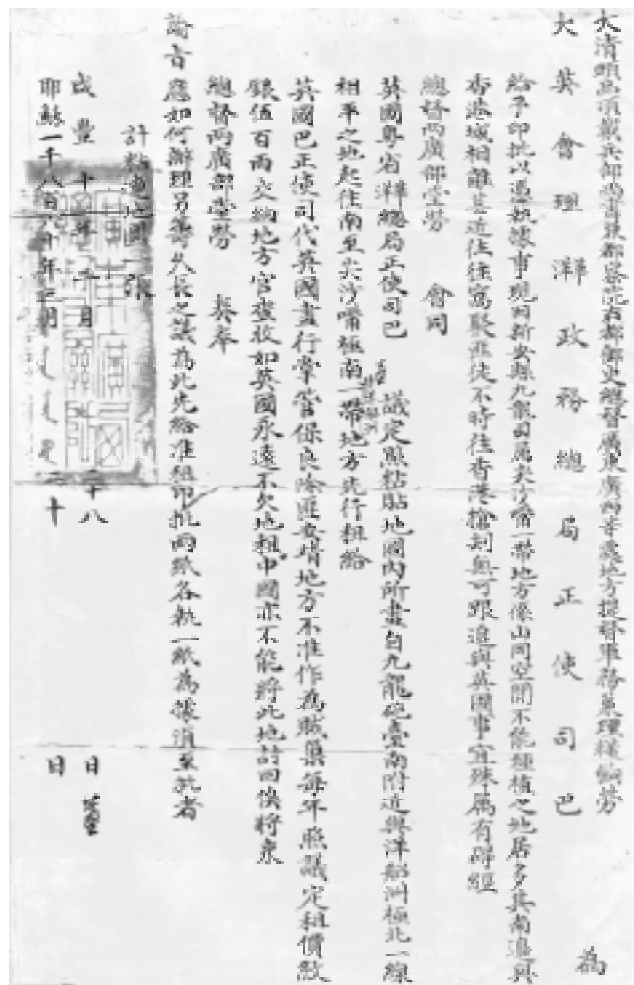 大清頭品頂戴兵部尚書兼都察院右都御史總督廣東廣西等處地方提督軍務兼理糧餉勞
大英會理華政務總局正使司巴 為
給予印批以憑執據事現因新安縣九龍司屬尖沙嘴一帶地方係山岡空閒不能種植之地居多其南邊與
香港城相離甚近往往窩聚匪徒不時往香港搶刼無可跟追與英國事宜殊屬有碍經
總督兩廣部堂勞 會同
英國粵省華總局正使司巴 議定照粘貼地圖內所畫自九龍砲臺南附近與洋船洲極北一線
相平之地起往南至尖沙嘴極南一帶地方先行租給
英國巴正使司代英國盡行掌管保良除匪安靖地方不准作為賊巢每年照議定租價紋
銀伍百兩交納地方官查收如英國永遠不欠地租中國亦不能將此地討回俟將來
總督兩廣部堂勞 奏奉
諭旨應如何辦理另籌久長之議為此先給准租印批兩紙各執一紙為據須至批者
計粘連地圖一張
咸豐十年二月二十八日
耶穌一千八百六十年三月二十日